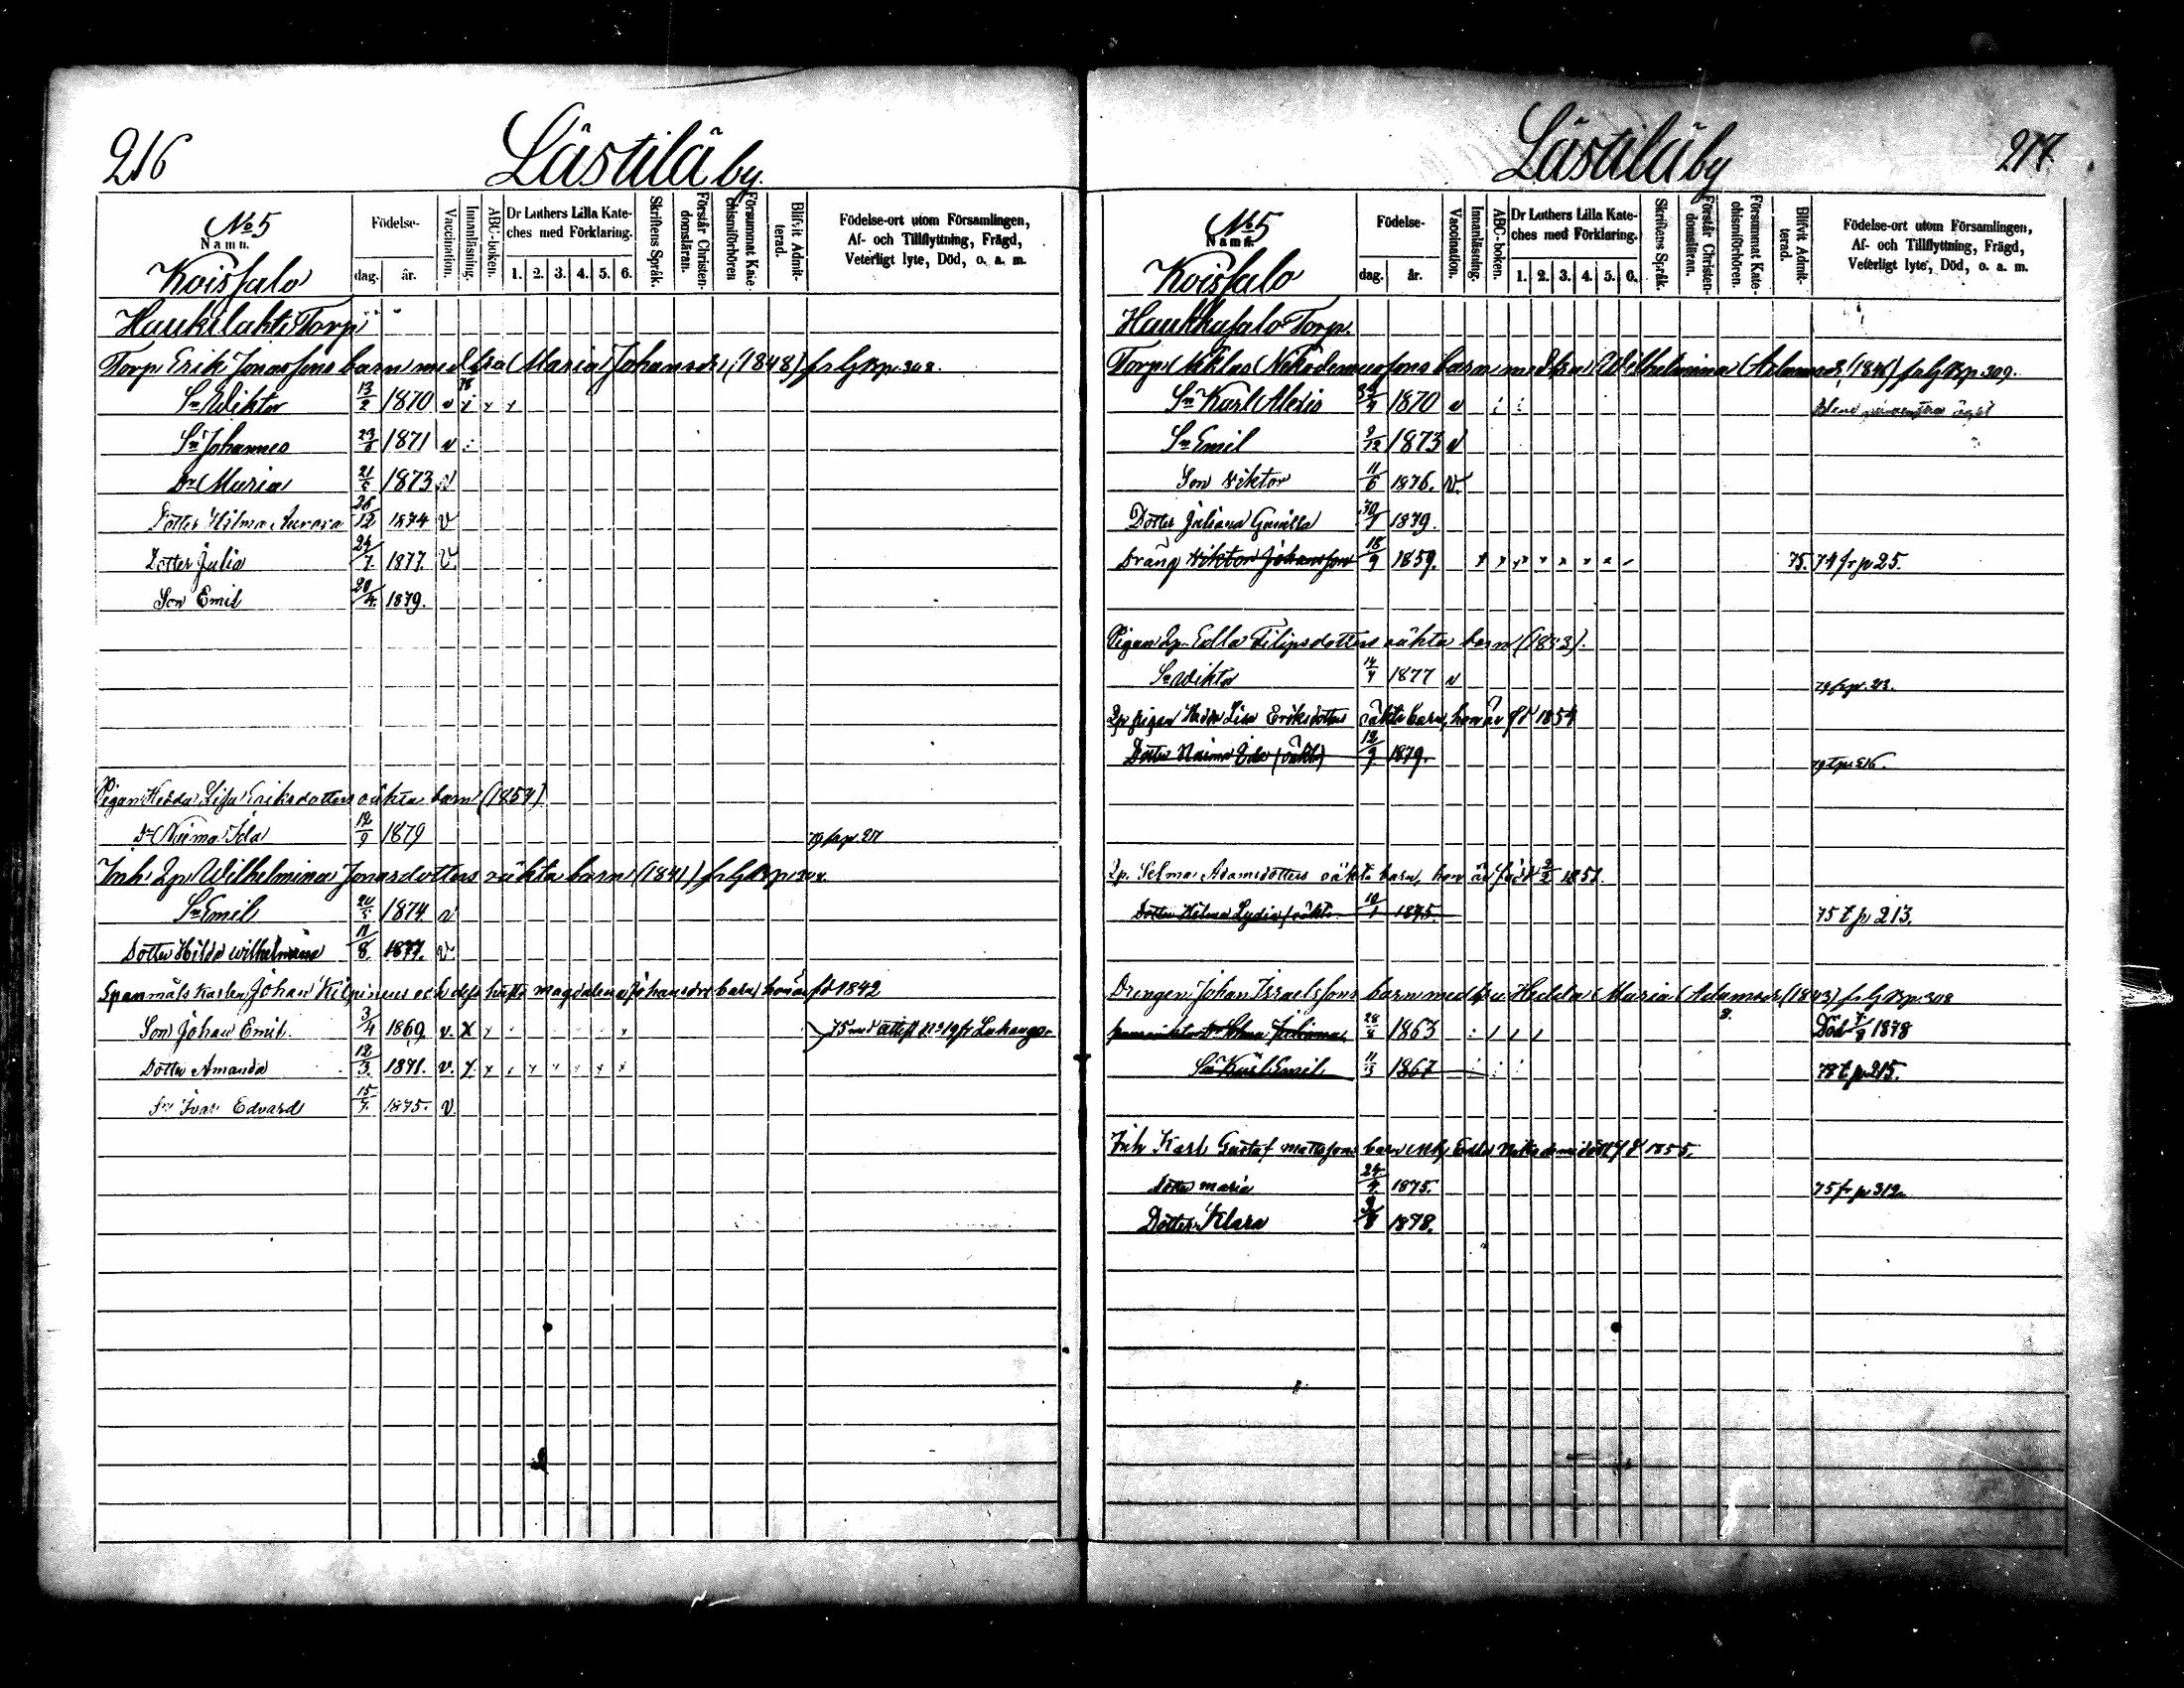 216
Lästilä by.
No 5
Namn.
Födelse-
dag.
år.
Vaccination.
Innanläsning.
ABC-boken.
Dr Luthers Lilla Kate-
ches med Förklaring.
1. 2. 3. 4. 5. 6.
Skriftens Språk.
Förstår Christen-
domsläran.
Försummat Kate-
chismiförhören
Blifvit Admit-
terad.
Födelse-ort utom Församlingen,
Af- och Tillflyttning, Frägd,
Veterligt lyte, Död, o. a. m.
Koisjalo
Haukilahti Torp
Torp. Erik Jonassons barn med hu Maria Johansdr, (1848) fr 308.
Sn Wiktor 13/2 1870 v
Sn Johannes 23/8 1871 v
Dr Maria 21/8 1873 v
Dotter Hilma Aurora 26/12 1874 v
Dotter Julia 24/7 1877. v.
Son Emil 20/4. 1879.
Pigan Hedda Lisa Eriksdotters oäkta barn (1854)
Dr Naima Ida 12/9 1879 79 fr p. 217
Inh. Lp. Wilhelmina Jonasdotters oäkta barn (1841)
Sn Emil 20/5 1874 v
Dotter Hilda Wilhelmina 11/8. 1877. v.
Spanmåls karlen Johan Kilpinens och dess hustr. Magdalena Johansdrs barn, hon är föd 1842
Son Johan Emil. 3/4 1869. v. x 75 med attest No 19 fr Luhanga
Dotter Amanda 12/3. 1871. v. x
Sn Ivar Edvard 15/7. 1875. v
Lästilä by
217.
No 5
Namn.
Födelse-
dag.
år.
Vaccination.
Innanläsning.
ABC-boken.
Dr Luthers Lilla Kate-
ches med Förklaring.
1. 2. 3. 4. 5. 6.
Skriftens Språk.
Förstår Christen-
domsläran.
Försummat Kate-
chismiförhören.
Blifvit Admit-
terad.
Födelse-ort utom Församlingen,
Af- och Tillflyttning, Frägd,
Veterligt lyte, Död, o. a. m.
Koisjalo
Haukkasalo Torp.
Torp. Niklas Nikodemussons barn med hu Wilhelmina Adamsdr, (1846) 309.
Sn Karl Alexis 1870 v
Sn Emil 9/12 1873 v
Son Viktor 11/6 1876. v.
Dotter Juliana Gunilla 30/1 1879.
Dräng Viktor Johansson 18/9 1859. 75. 74 fr p 25.
Pigan Lp. Edla Filipsdotters oäkta barn (1853).
Sn Wiktor 14/4 1877 v 79 fr p. 213.
Lp pigan Hedda Lisa Eriksdotters oäkta barn, hon är fd 1854
Dotter Naima Ida (oäkta) 12/9. 1879. 79 t p 216.
Lp. Selma Adamsdotters oäkta barn, hon är född 2/2 1851.
Dotter Hilma Lydia, oäkta 10/1 1875. 75 t p 213.
Drengen Johan Israelssons barn med hu Hedda Maria Adamsdr (1843) 308
Dr Selma Juliana 28/8 1863 Död 7/8 1878
Sn Karl Emil 11/3 1867 78 t p 215.
Inh Karl Gustaf Mattssons barn mh Edla Nikodemidotter fd 1855.
Dotter Maria 24/9. 1875. 75 fr p 312.
Dotter Klara 1878.